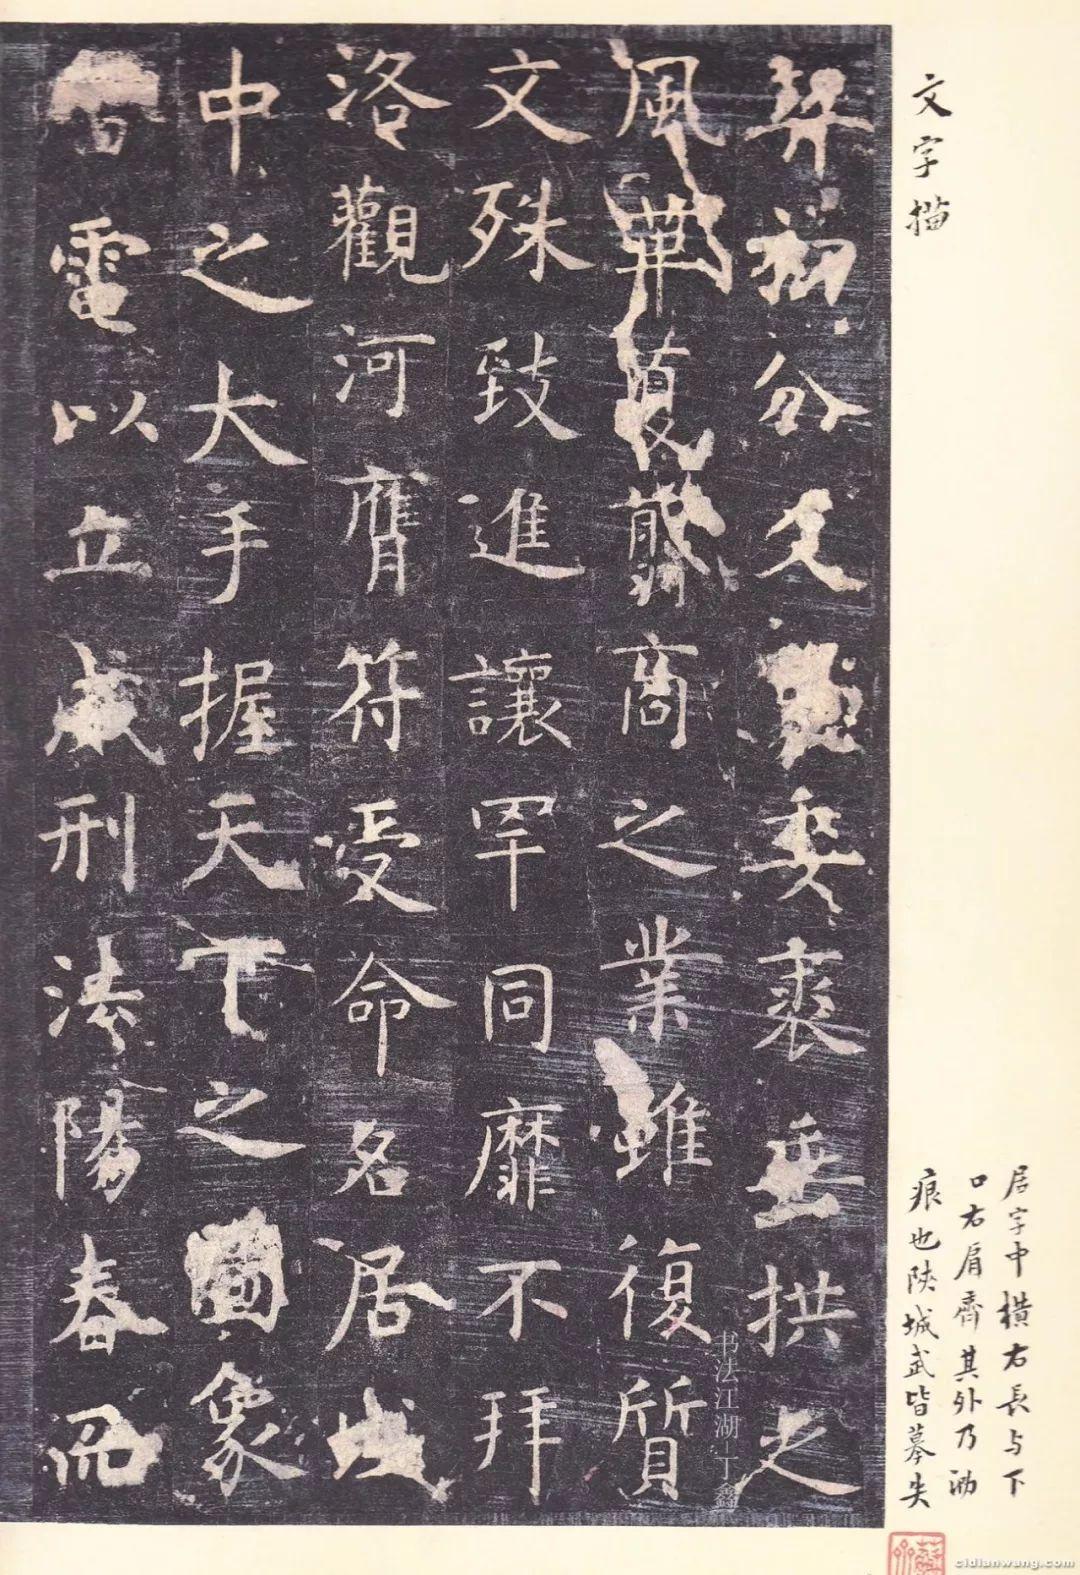 文字描
居字中橫右長与下
口右肩齊其外乃泐
痕也陝城武皆摹失
契初分爻象委裘垂拱之
風華夏翦商之業雖復質
文殊致進讓罕同靡不拜
洛觀河膺符受命名居域
中之大手握天下之圖象
雷電以立威刑法陽春而
书法江湖-丁鑫
cidianwang.com